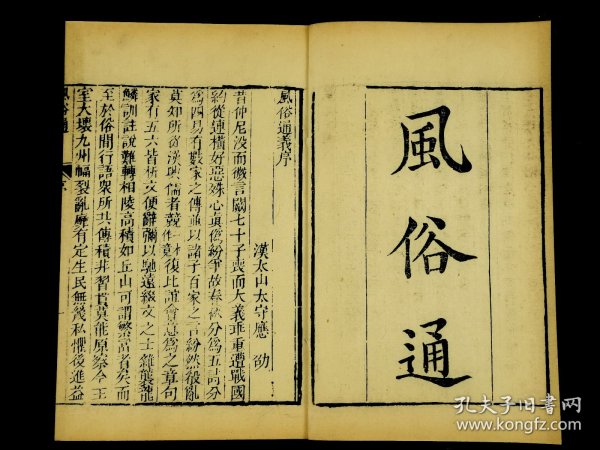 風俗通
風俗通義序
漢太山太守應劭
昔仲尼没而微言闕七十子喪而大義乖重遭戰國
約從連橫好惡殊心真僞紛爭故春秋分爲五詩分
爲四易有數家之傳並以諸子百家之言紛然殽亂
莫知所從漢興儒者競復比誼會意爲之章句
家有五六皆析文便辭彌以馳遠綴文之士雜襲龍
鱗訓註說難轉相陵高積如丘山可謂繁富者矣而
至於俗間行語衆所共傳積非習貫莫能原察今王
室大壞九州幅裂亂靡有定生民無幾私懼後進益
風俗通
序
孔夫子旧书网
www.kongfz.com